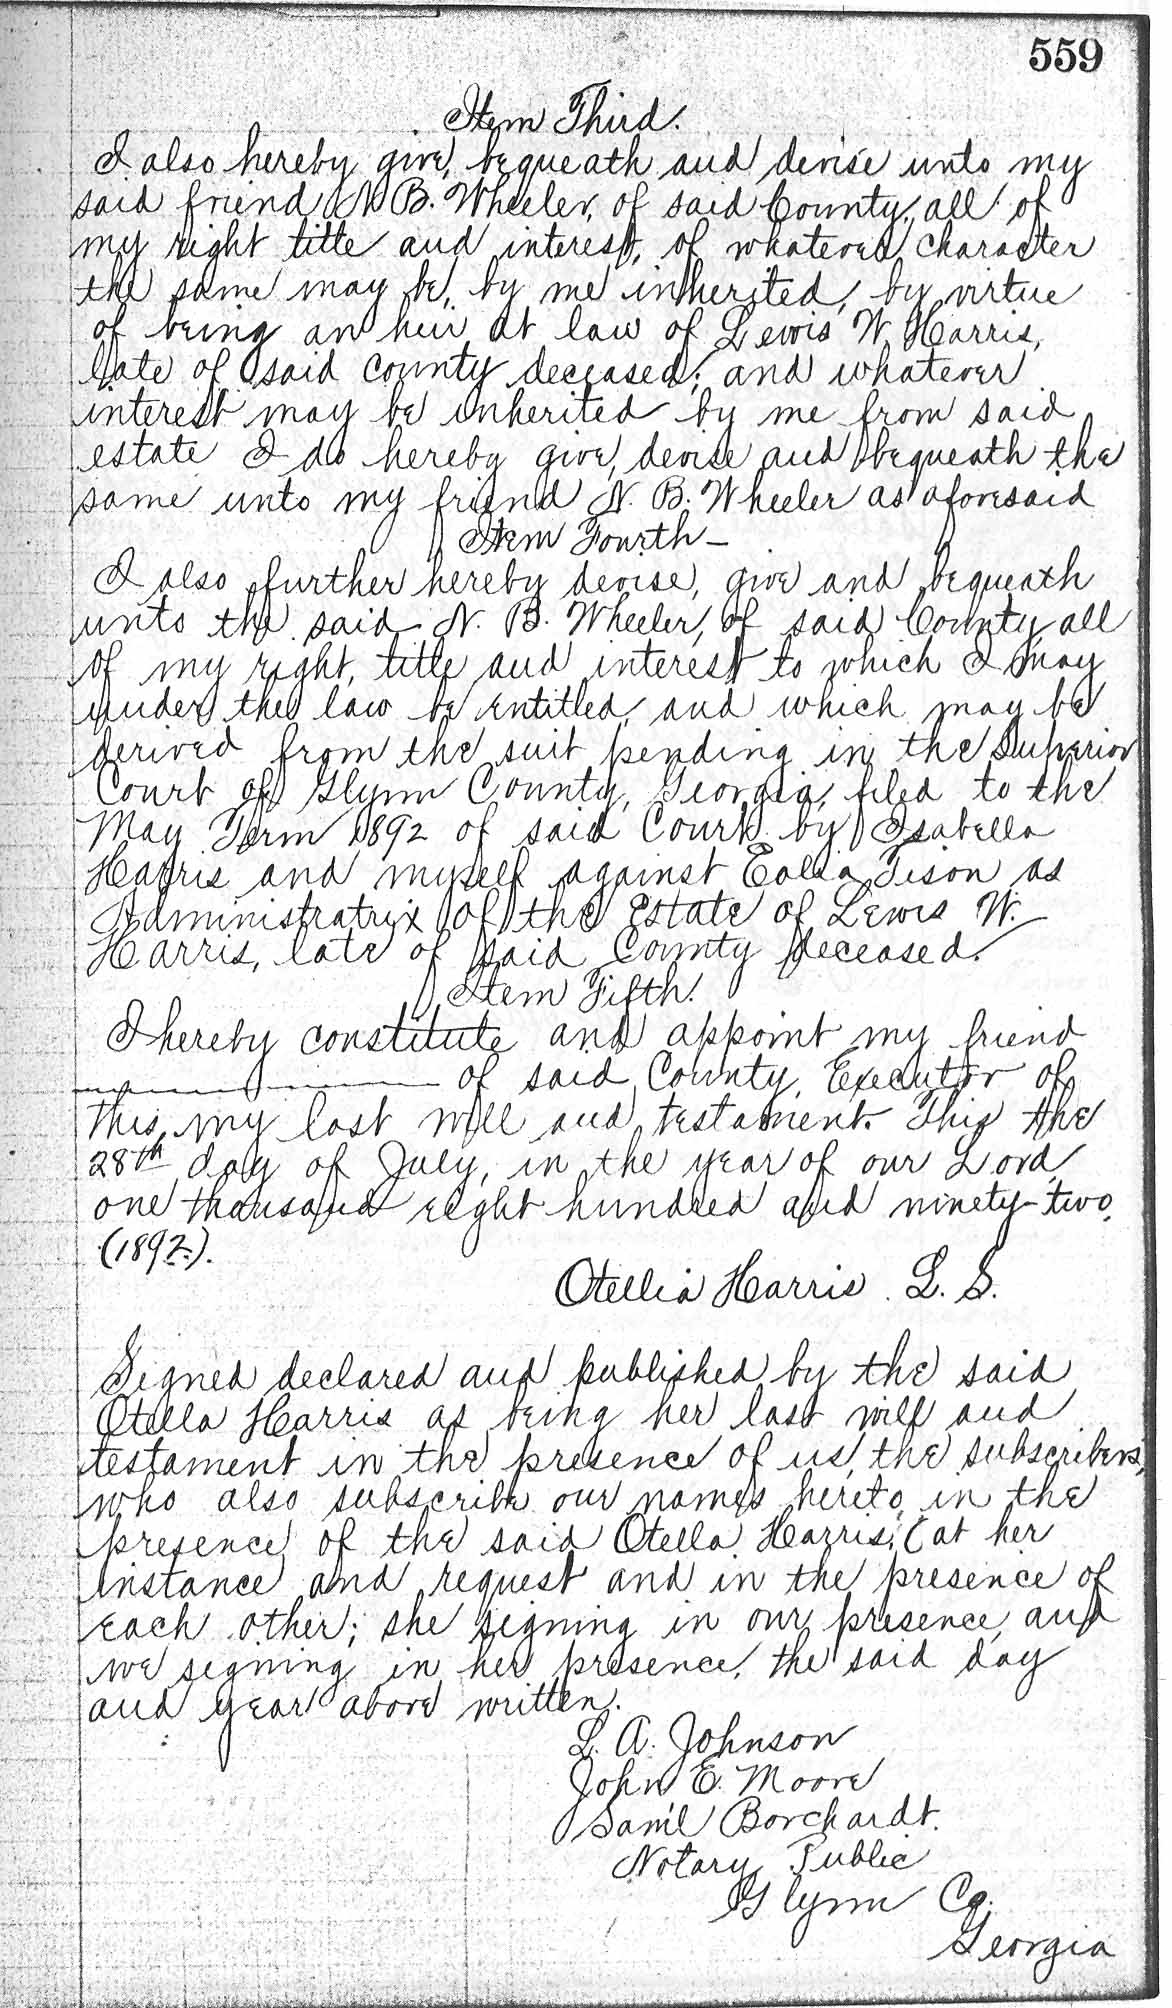 559
Item Third.
I also hereby give, bequeath and devise unto my
said friend N. B. Wheeler, of said County, all of
my right title and interest, of whatever character
the same may be, by me inherited, by virtue
of being an heir at law of Lewis W. Harris,
late of said county deceased; and whatever
interest may be inherited by me from said
estate I do hereby give, devise and bequeath the
same unto my friend N. B. Wheeler as aforesaid
Item Fourth —
I also further hereby devise, give and bequeath
unto the said N. B. Wheeler, of said County, all
of my right, title and interest to which I may
under the law be entitled, and which may be
derived from the suit pending in the Superior
Court of Glynn County, Georgia, filed to the
May Term 1892 of said Court by Isabella
Harris and myself against Eolia Tison as
Administratrix of the Estate of Lewis W.
Harris, late of said County deceased.
Item Fifth.
I hereby constitute and appoint my friend
———— of said County, Executor of
this, my last will and testament. This the
28th day of July, in the year of our Lord,
one thousand eight hundred and ninety-two.
(1892).
Otellia Harris L. S.
Signed declared and published by the said
Otella Harris as being her last will and
testament in the presence of us, the subscribers,
who also subscribe our names hereto in the
presence of the said Otella Harris, (at her
instance and request and in the presence of
each other; she signing in our presence and
we signing in her presence, the said day
and year above written.
L. A. Johnson
John E. Moore
Sam'l Borchardt.
Notary Public
Glynn Co.
Georgia